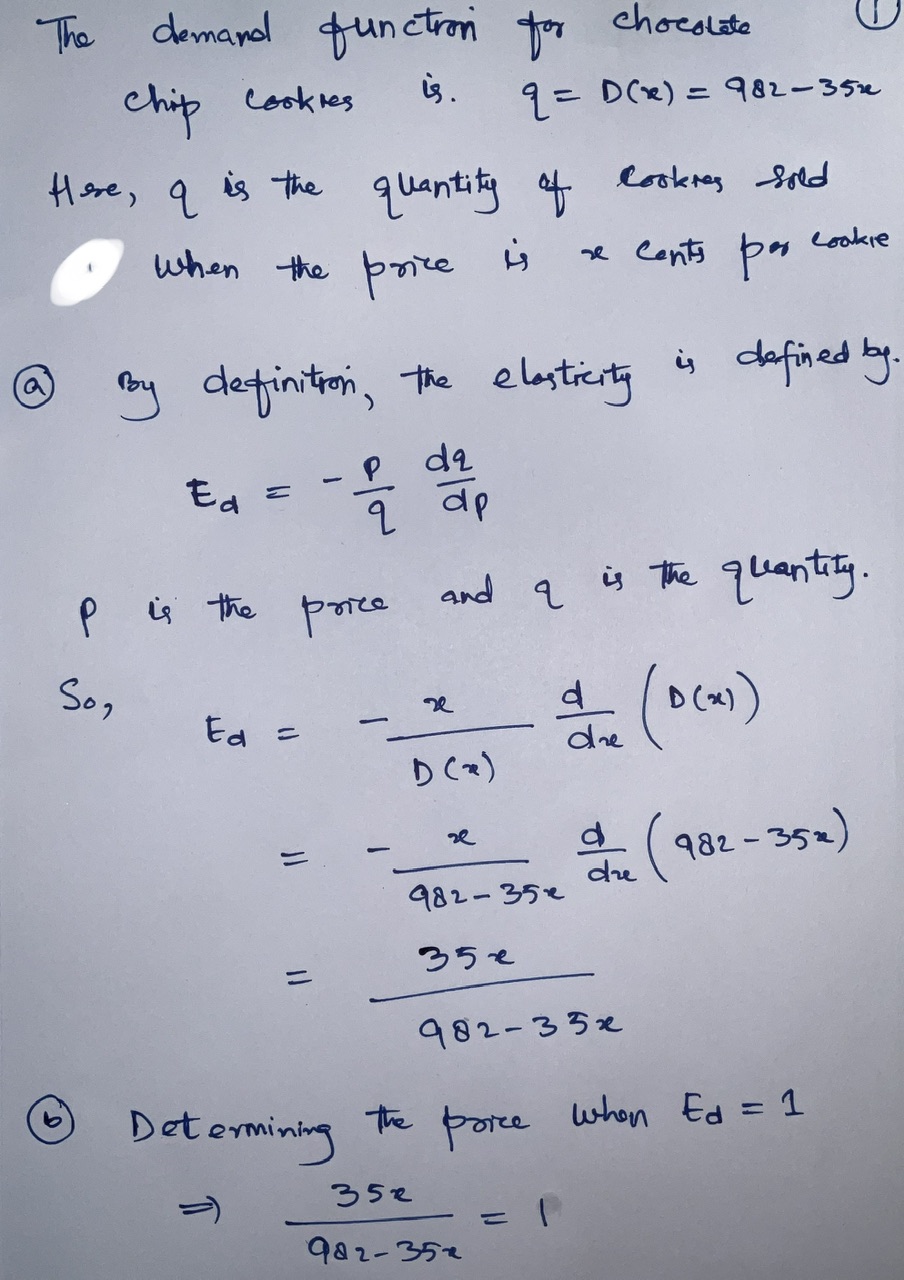 ①
The demand function for chocolate
chip cookies is. q = D(x) = 982-35x
Here, q is the quantity of cookies sold
when the price is x cents per cookie
ⓐ By definition, the elasticity is defined by.
Ed = - p/q dq/dp
p is the price and q is the quantity.
So, Ed = - x/D(x) d/dx (D(x))
= - x/(982-35x) d/dx (982-35x)
= 35x/(982-35x)
ⓑ Determining the price when Ed = 1
⇒ 35x/(982-35x) = 1